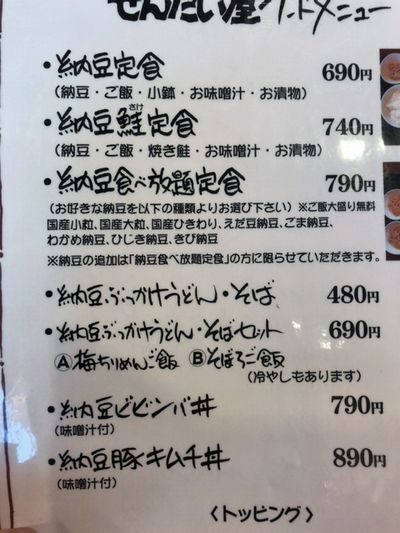 せんだい屋フードメニュー
・納豆定食 690円
(納豆・ご飯・小鉢・お味噌汁・お漬物)
さけ
・納豆鮭定食 740円
(納豆・ご飯・焼き鮭・お味噌汁・お漬物)
・納豆食べ放題定食 790円
(お好きな納豆を以下の種類よりお選び下さい) ※ご飯大盛り無料
国産小粒、国産大粒、国産ひきわり、えだ豆納豆、ごま納豆、
わかめ納豆、ひじき納豆、きび納豆
※納豆の追加は「納豆食べ放題定食」の方に限らせていただきます。
・納豆ぶっかけうどん・そば 480円
・納豆ぶっかけうどん・そばセット 690円
Ⓐ梅ちりめんご飯 Ⓑそぼろご飯
(冷やしもあります)
・納豆ビビンバ丼 790円
(味噌汁付)
・納豆豚キムチ丼 890円
(味噌汁付)
〈トッピング〉